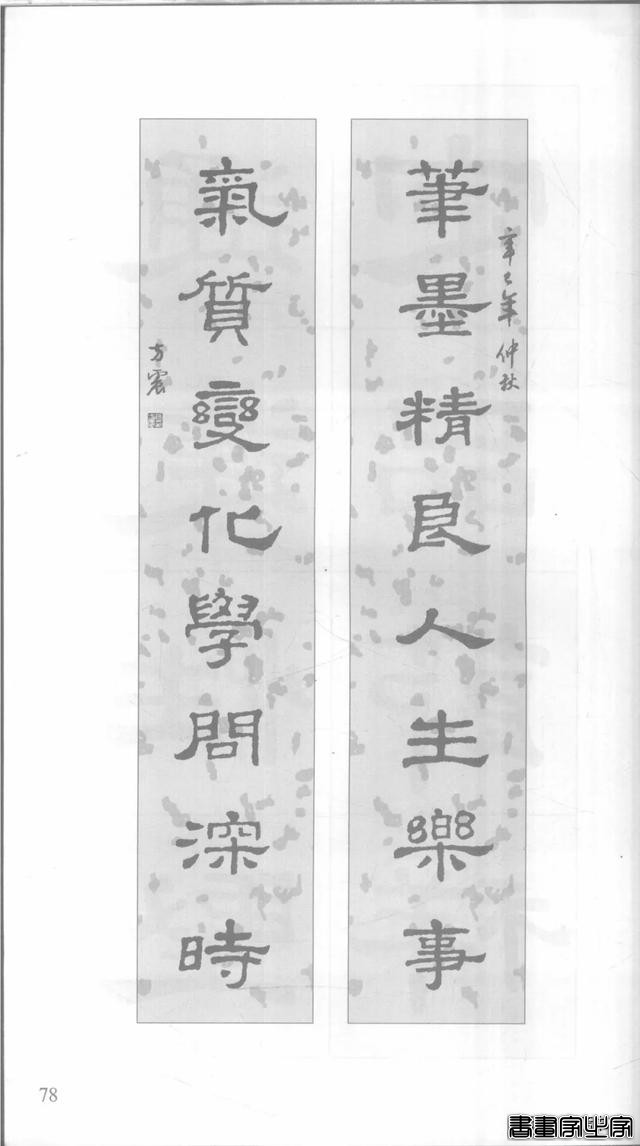 筆墨精良人生樂事
辛巳年仲秋
氣質變化學問深時
方震
78
書畫家必字